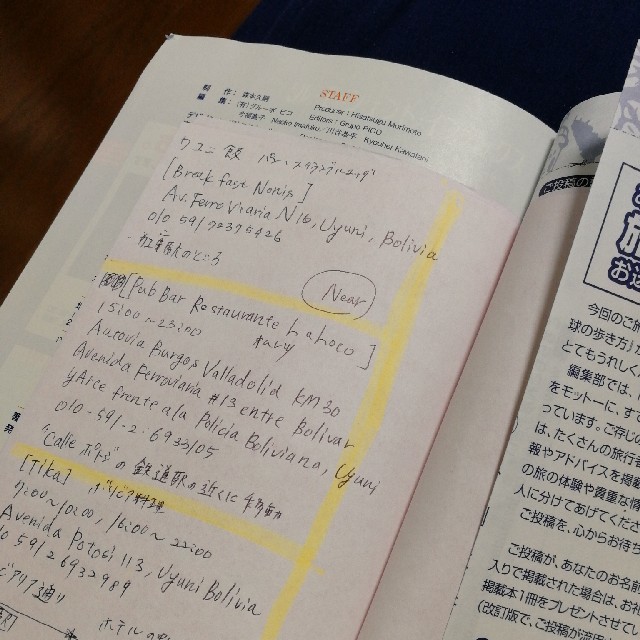 STAFF
制 作： 森本久嗣 Producer : Hisatsugu Morimoto
編 集： (有)グルーポ ピコ Editors : Grupo PICO
Naoko Imahiku / 川谷恭平 Kyouhei Kawatani
ウユニ 飯
[Breakfast Nonis]
Av. Ferroviaria N16, Uyuni, Bolivia
010 591 72375426
のところ
[Pub Bar Restaurante La Loco]
Near
15:00~23:00
Autovia Burgos Valladolid KM 30
Avenida Ferroviaria #13 entre Bolivar
y Arce frente a la Policia Boliviana, Uyuni
010-591-2-6933105
"Calle の 鉄道駅の近くに
[Tika] ボリビア料理
7:00~10:00, 16:00~22:00
Avenida Potosi 113, Uyuni Bolivia
0 591 2 6932989
通り
ホテルの
ご投稿の
お送
今回のご
球の歩き方』
とてもうれし
編集部では、
をモットーに、す
っています。ご存じ
は、たくさんの旅行
報やアドバイスを掲載
の旅の体験や貴重な情
人に分けてあげてくださ
ご投稿を、心からお待ち
ご投稿が、あなたのお名前
入りで掲載された場合は、お
掲載本1冊をプレゼントさせてい
(改訂版で、ご投稿が流用